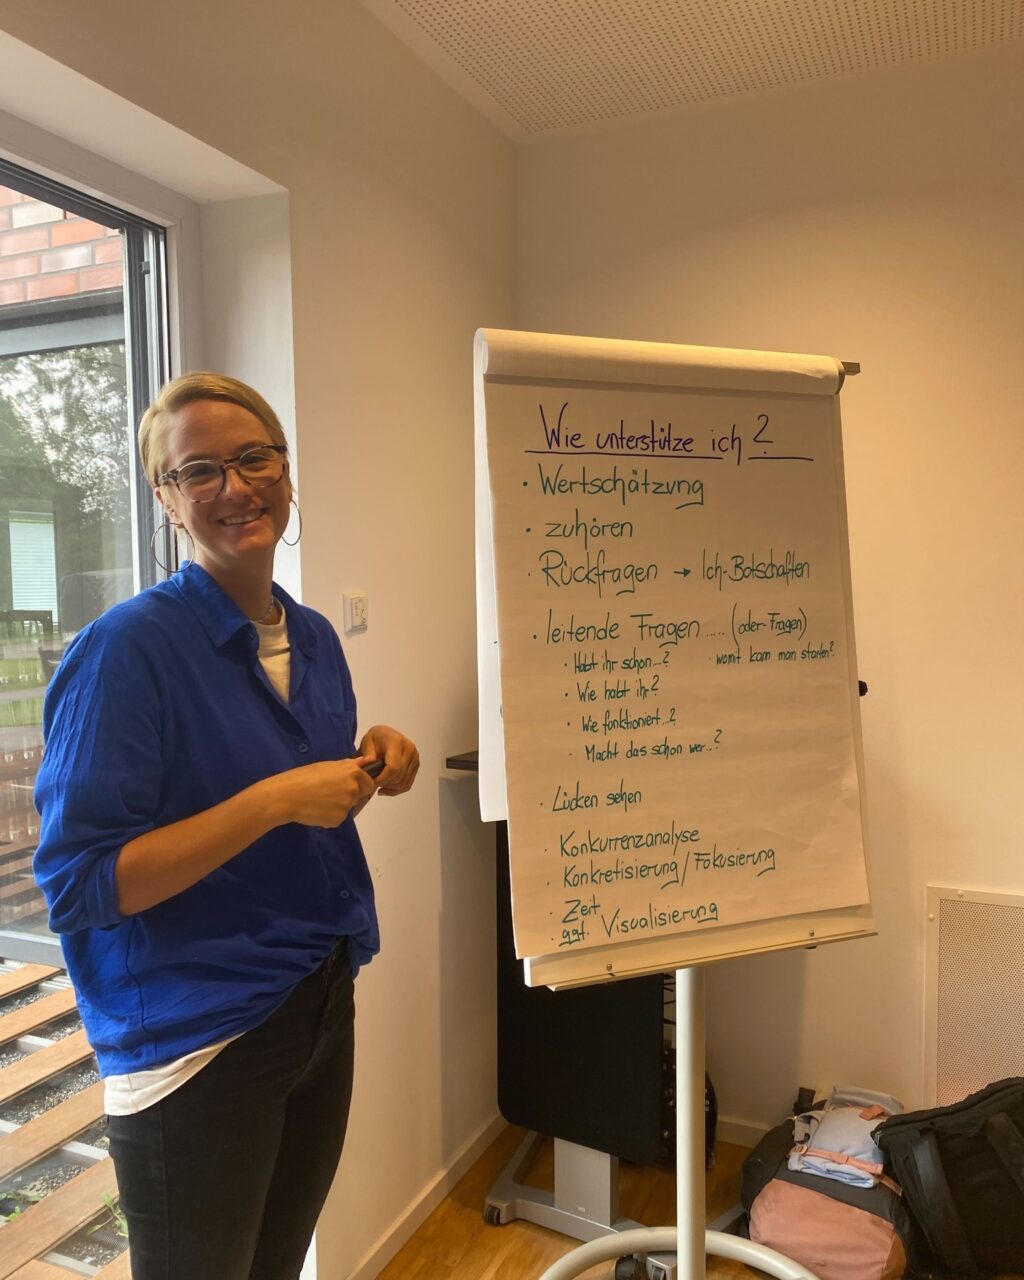 Wie unterstütze ich?
• Wertschätzung
• zuhören
• Rückfragen → Ich-Botschaften
• leitende Fragen ..... (oder-Fragen)
• Habt ihr schon...? • womit kam man starten?
• Wie habt ihr?
• Wie funktioniert...?
• Macht das schon wer...?
• Lücken sehen
Konkurrenzanalyse
• Konkretisierung/Fokusierung
• Zeit
• ggf. Visualisierung